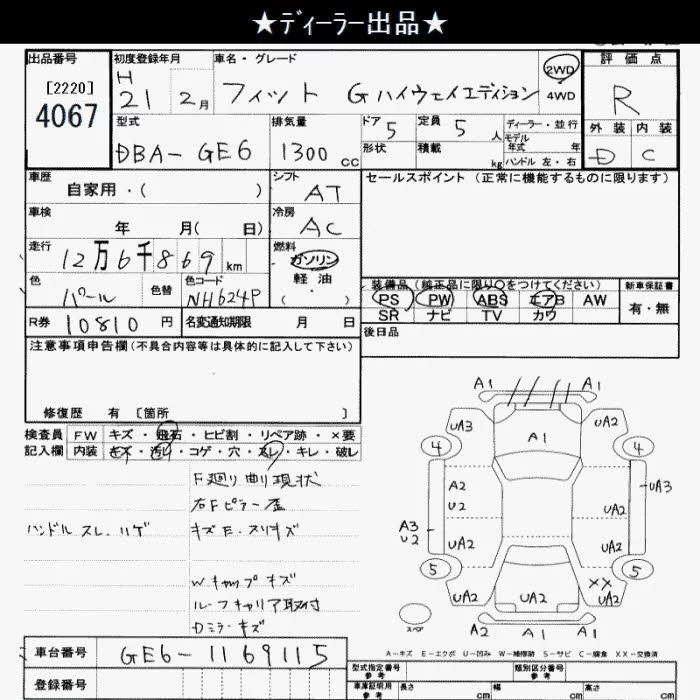 ★ディーラー出品★
出品番号
[2220]
4067
初度登録年月
H
21 2月
車名・グレード
フィット Gハイウェイエディション
2WD
4WD
評価点
R
外装 内装
D C
型式
DBA-GE6
排気量
1300 cc
ドア
5
定員
5 人
ディーラー・並行
モデル
年式 年
形状
積載
kg
ハンドル 左・右
車歴
自家用・( )
シフト
AT
セールスポイント(正常に機能するものに限ります)
車検
年 月( 日)
冷房
AC
走行
12万6千869 km
燃料
ガソリン
軽油
( ・ )
色
パール
色替
色コード
NH624P
装備品(純正品に限り○をつけてください)
新車保証書
PS PW ABS エアB AW
SR ナビ TV カワ
有・無
R券 10810 円
名変通知期限 月 日
後日品
注意事項申告欄(不具合内容等は具体的に記入して下さい)
修復歴 有 [箇所 ]
検査員 FW キズ・飛石・ヒビ割・リペア跡・×要
記入欄 内装 キズ・汚れ・コゲ・穴・スレ・キレ・破レ
F廻り曲り現状
右Fピラー歪
ハンドルスレ.ハゲ
キズE.スリキズ
Wキャップキズ
ルーフキャリア取付
Dミラーキズ
A1 A1
UA3 A1 UA2
4 4
A2 UA3
U2 UA2
A3
U2
UA2 UA2
5 5
XX
UA2 UA2 UA2
スペア
A2 A1 A1
A-キズ E-エクボ U-凹み W-補修跡 S-サビ C-腐食 XX-交換済
車台番号 GE6-1169115
登録番号
型式指定番号
参考
類別区分番号
参考
車庫証明用
参考
長さ cm 幅 cm 高さ cm